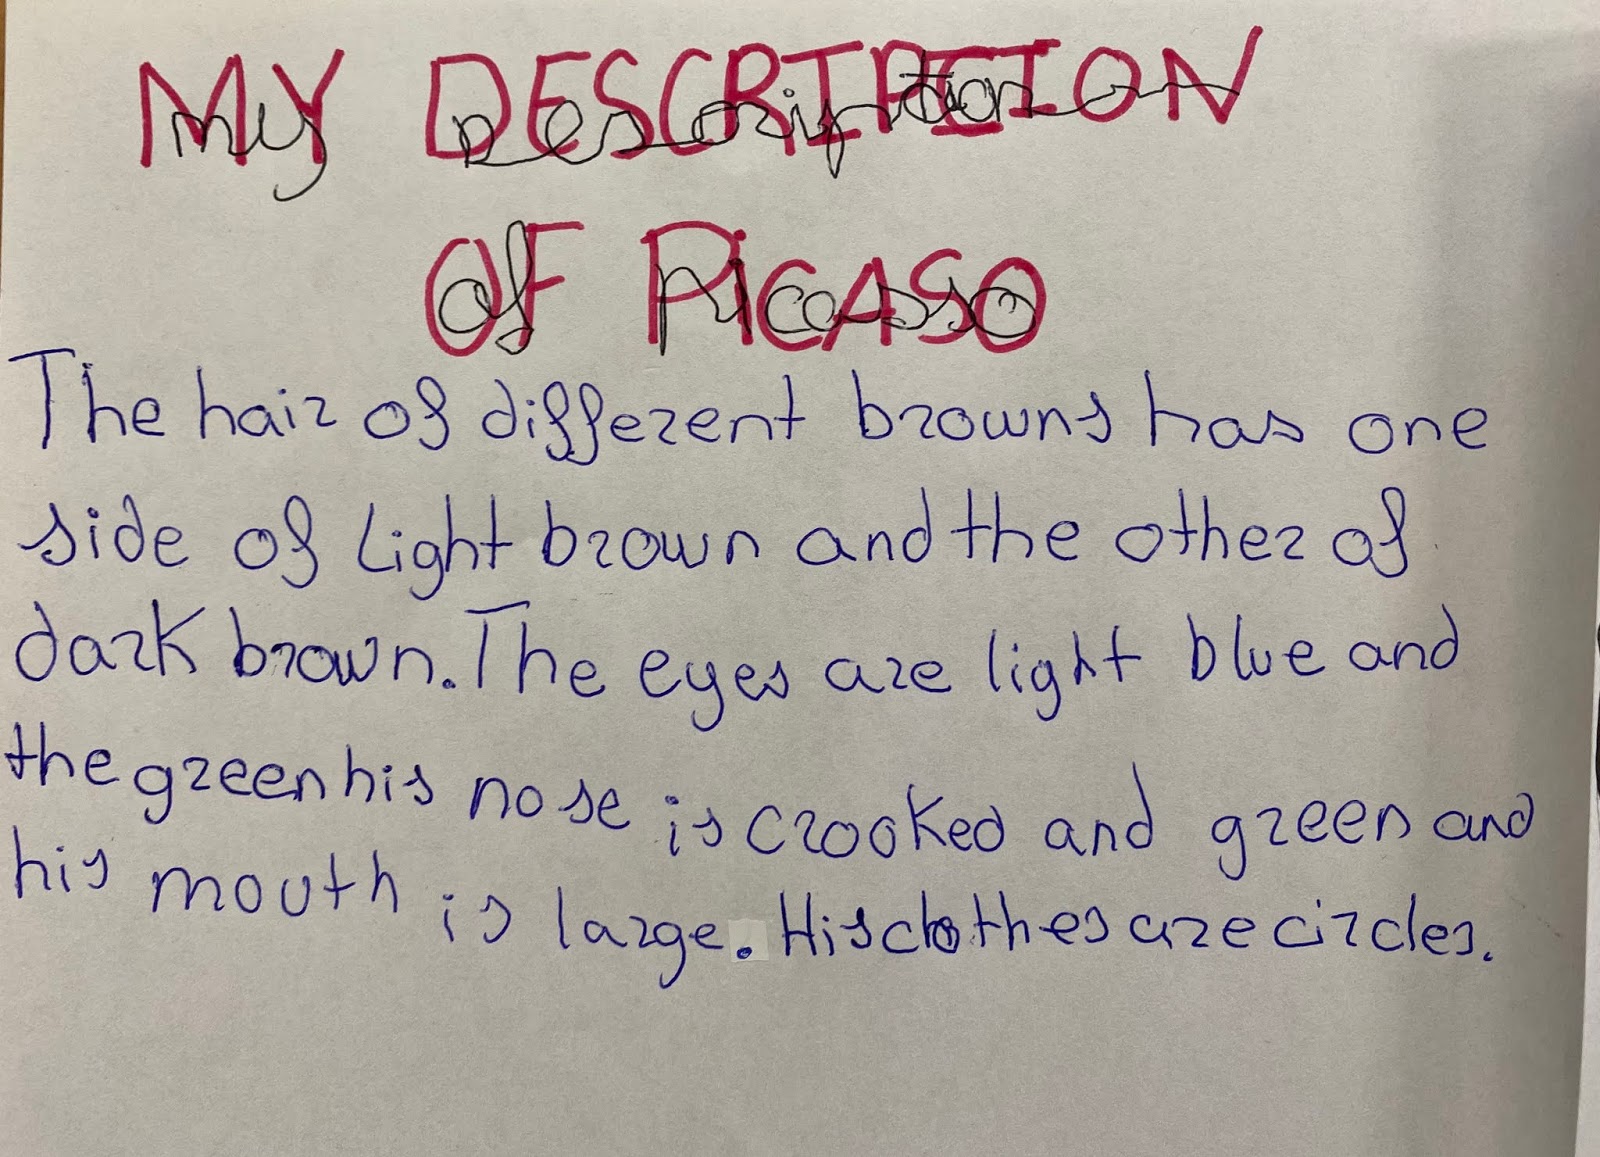 MY DESCRIPTION
OF PICASO
The hair of different browns has one
side of Light brown and the other of
dark brown. The eyes are light blue and
the green his nose is crooked and green and
his mouth is large. His clothes are circles.